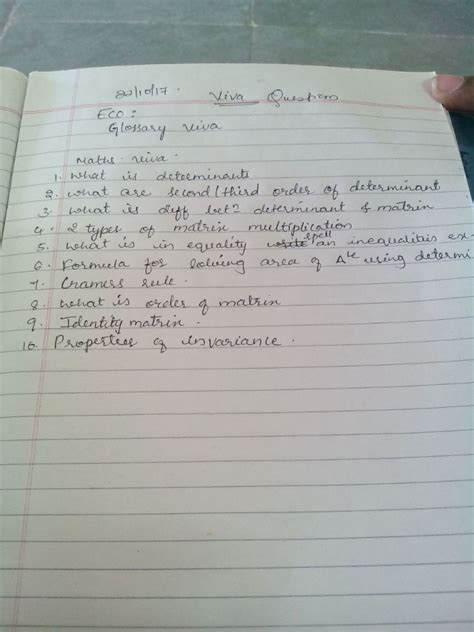 20/10/17. Viva Questions
Eco:
Glossary viva
Maths viva.
1. what is determinants
2. what are second/third order of determinant
3. what is diff bet? determinant & matrin
4. 2 types of matrin multiplication
spell
5. what is in equality write an inequalitis ex-
6. Formula for solving area of Δle using determi
7. Cramers rule.
8. what is order of matrin
9. Identity matrin.
10. Properties of invariance.